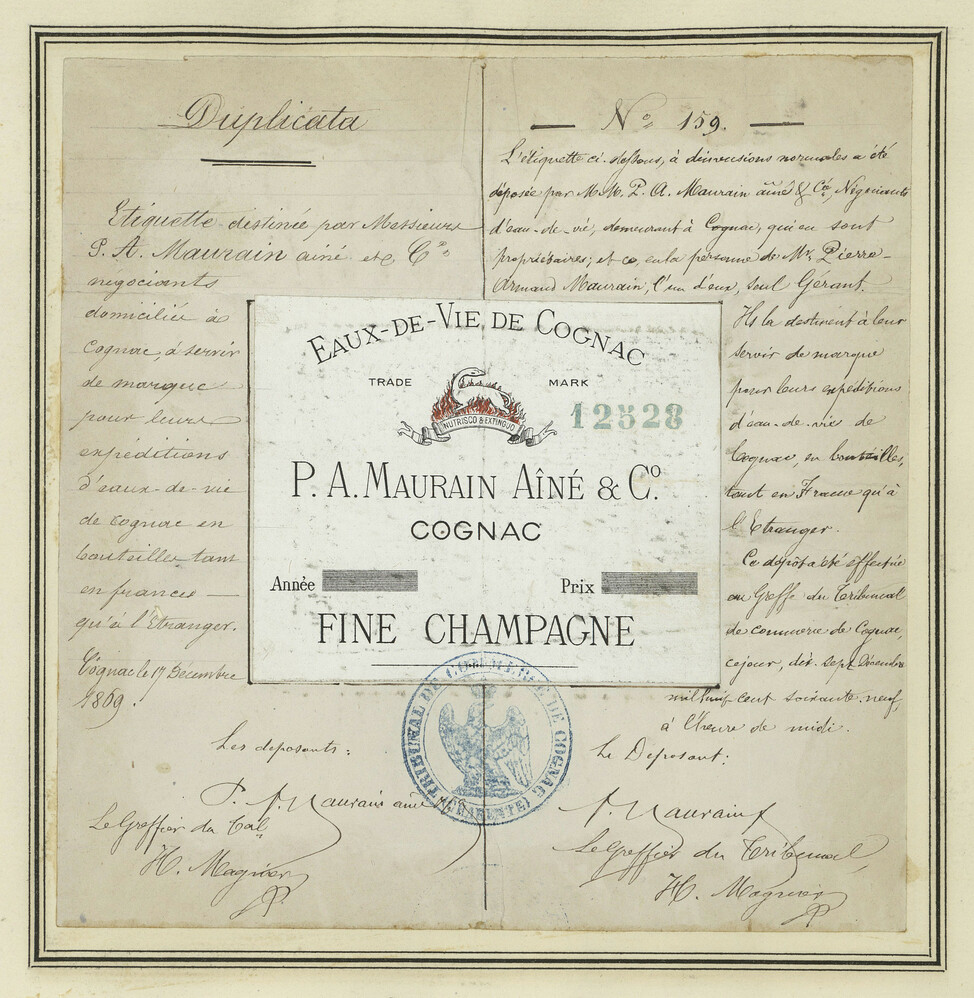 Duplicata
Etiquette destinée par Messieurs
P. A. Maurain ainé et Cie
négociants
domiciliés à
Cognac, à servir
de marque
pour leurs
expéditions
d'eaux-de-vie
de Cognac en
bouteilles tant
en france
qu'à l'Etranger.
Cognac le 17 Décembre
1869.
Les deposants:
P. A. Maurain ainé
Le Greffier du Tal
H. Magnier
No 159.
L'étiquette ci-dessous, à dimensions normales a été
déposée par M.M. P. A. Maurain ainé & Cie, Négociants
d'eau-de-vie, demeurant à Cognac, qui en sont
propriétaires, et ce, en la personne de Mr. Pierre-
Armand Maurain, l'un d'eux, seul Gérant.
Ils la destinent à leur
servir de marque
pour leurs expéditions
d'eau-de-vie de
Cognac, en bouteilles,
tant en France qu'à
l'Etranger.
Ce dépôt a été effectué
au Greffe du Tribunal
de commerce de Cognac,
ce jour, dix-sept Décembre
mil huit cent soixante neuf,
à l'heure de midi.
Le Deposant:
A. Maurain
Le Greffier du Tribunal,
H. Magnier
EAUX-DE-VIE DE COGNAC
TRADE MARK
NUTRISCO & EXTINGUO
12528
P. A. MAURAIN AÎNÉ & Co.
COGNAC
Année Prix
FINE CHAMPAGNE
TRIBUNAL DE COMMERCE DE COGNAC
(CHARENTE)